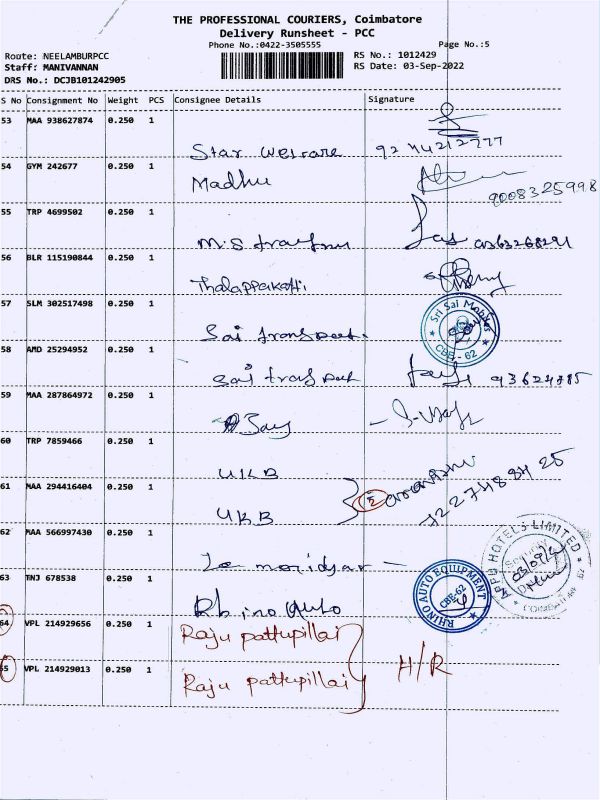 THE PROFESSIONAL COURIERS, Coimbatore
Delivery Runsheet - PCC
Phone No.:0422-3505555
Page No.:5
Route: NEELAMBURPCC
RS No.: 1012429
Staff: MANIVANNAN
RS Date: 03-Sep-2022
DRS No.: DCJB101242905
S No Consignment No Weight PCS Consignee Details Signature
53 MAA 938627874 0.250 1
Star Welfare
54 GYM 242677 0.250 1
Madhu
9008325998
55 TRP 4699502 0.250 1
M.S
56 BLR 115190844 0.250 1
Thalappakatti
57 SLM 302517498 0.250 1
Sai transport
Sri Sai Mobiles
CBE - 62
58 AMD 25294952 0.250 1
Sai
59 MAA 287864972 0.250 1
60 TRP 7859466 0.250 1
UKB
61 MAA 294416404 0.250 1
UKB
2
62 MAA 566997430 0.250 1
Le meridian
APPU HOTELS LIMITED
Security
03/09/22
COIMBATORE
63 TNJ 678538 0.250 1
Rhino Auto
RHINO AUTO EQUIPMENT
CBE-62
64 VPL 214929656 0.250 1
Raju pattupillai
H/R
65 VPL 214929013 0.250 1
Raju pattupillai